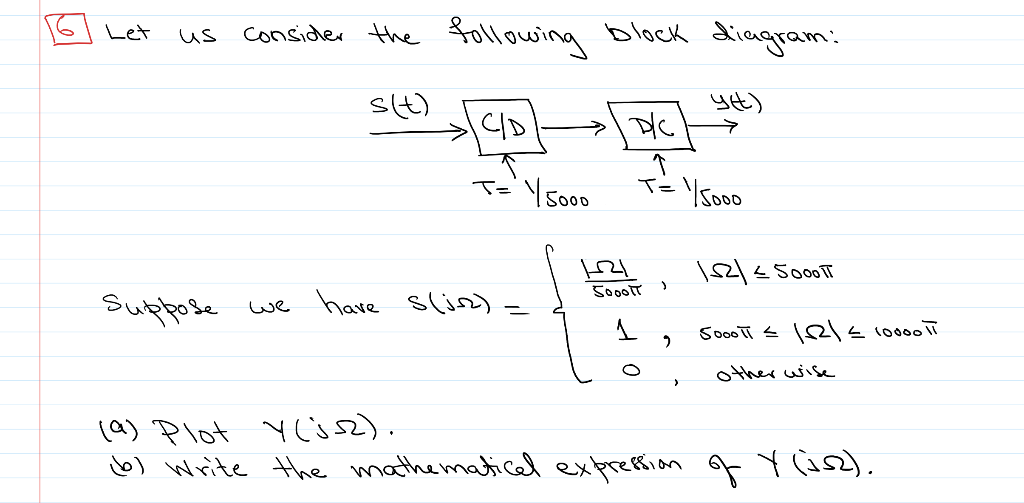 6 Let us consider the following block diagram:
s(t) C/D D/C y(t)
T= 1/5000 T= 1/5000
|Ω|/5000π , |Ω| ≤ 5000π
Suppose we have S(jΩ) = 1 , 5000π ≤ |Ω| ≤ 10000π
0 , otherwise
(a) Plot Y(jΩ).
(b) Write the mathematical expression of Y(jΩ).